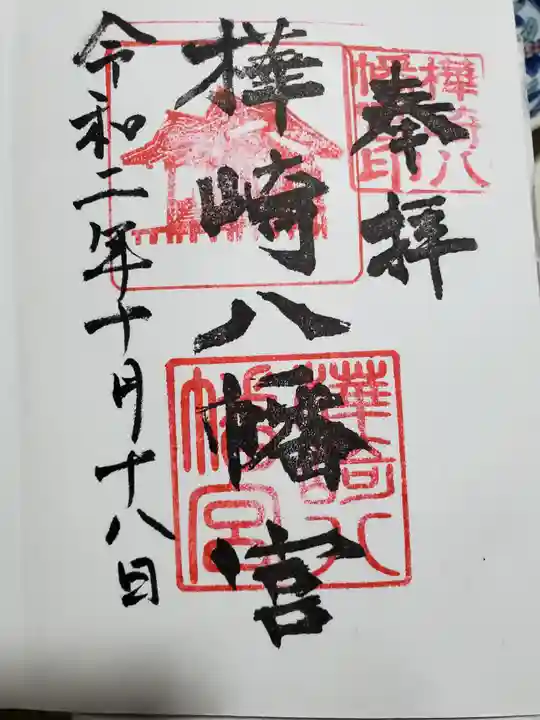 奉拝
樺崎八幡宮
令和二年十月十八日
樺崎八幡宮印
樺崎八幡宮